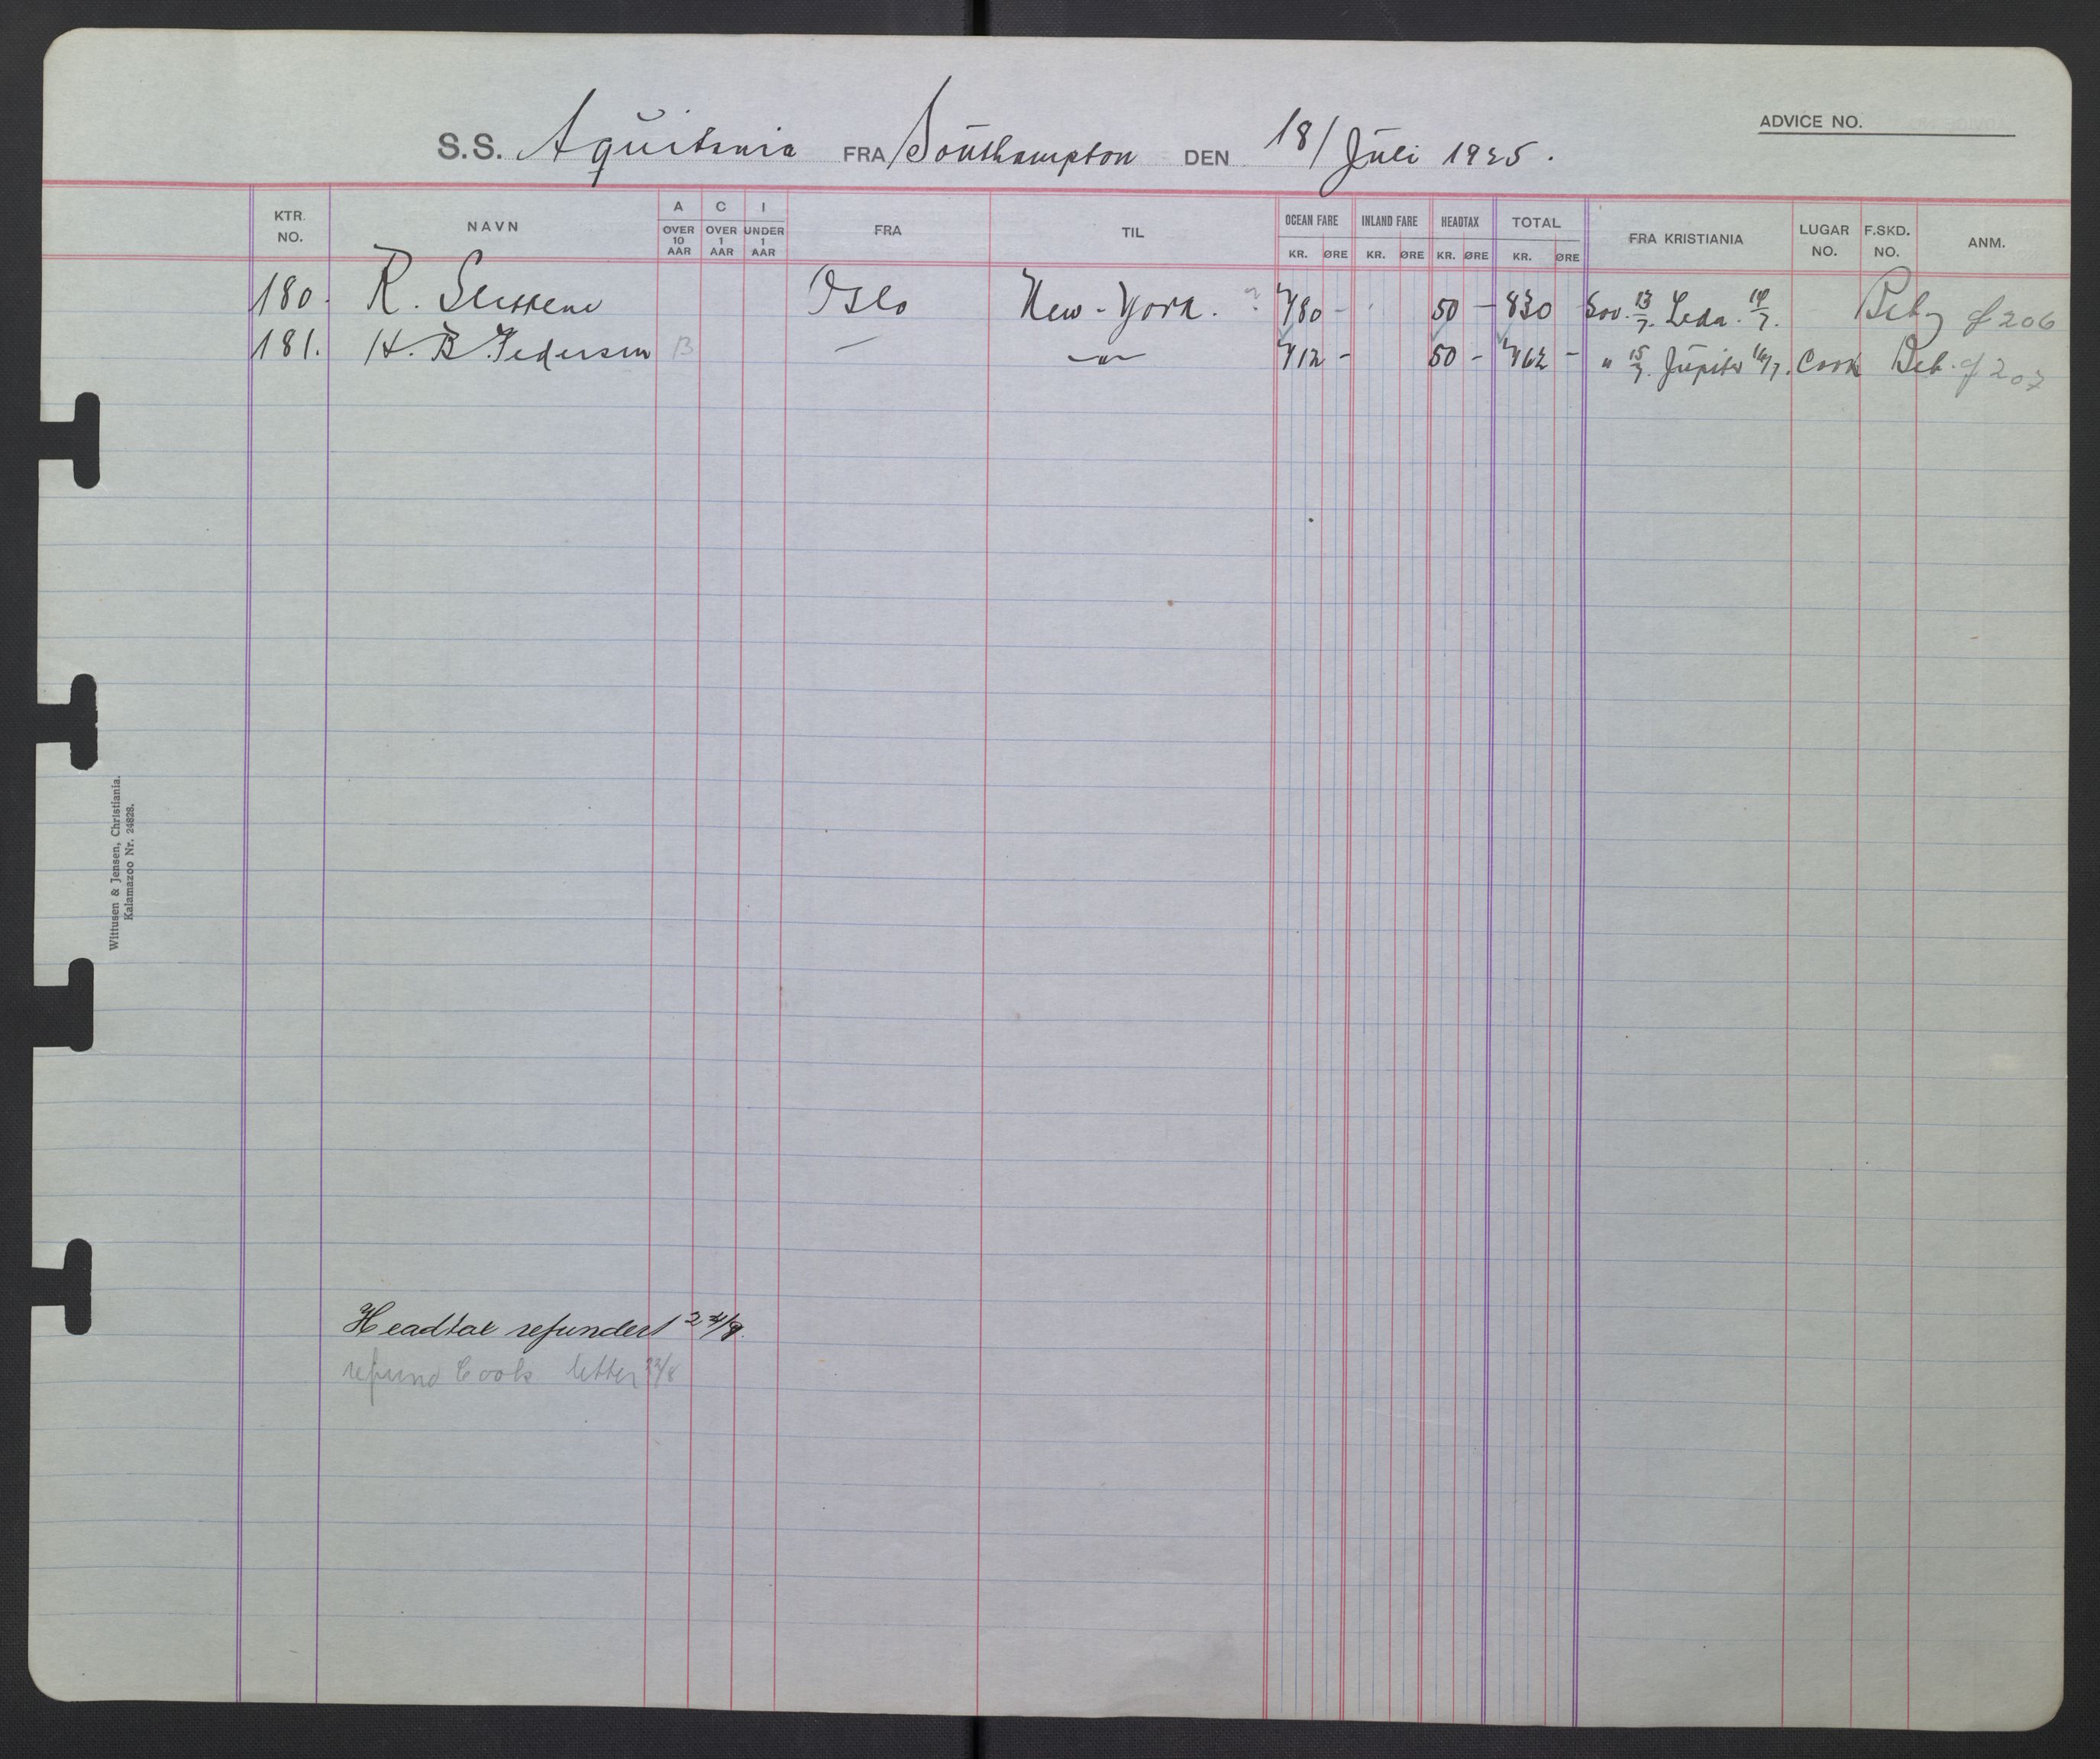 S.S. Aquitania FRA Southampton DEN 18/ Juli 1925.
ADVICE NO.
KTR. NO. NAVN A OVER 10 AAR C OVER 1 AAR I UNDER 1 AAR FRA TIL OCEAN FARE KR. ØRE INLAND FARE KR. ØRE HEADTAX KR. ØRE TOTAL KR. ØRE FRA KRISTIANIA LUGAR NO. F.SKD. NO. ANM.
180. R. Oslo New-York. 780 - 50 - 830 13/7. Leda. 14/7. 206
181. H. B. Pedersen B — -"- 712 - 50 - 762 - " 15/7. Jupiter 16/7. Cook Bet. 207
Wittusen & Jensen, Christiania.
Kalamazoo Nr. 24828.
Headtax refundert 24/8.
refund Cook letter 22/8